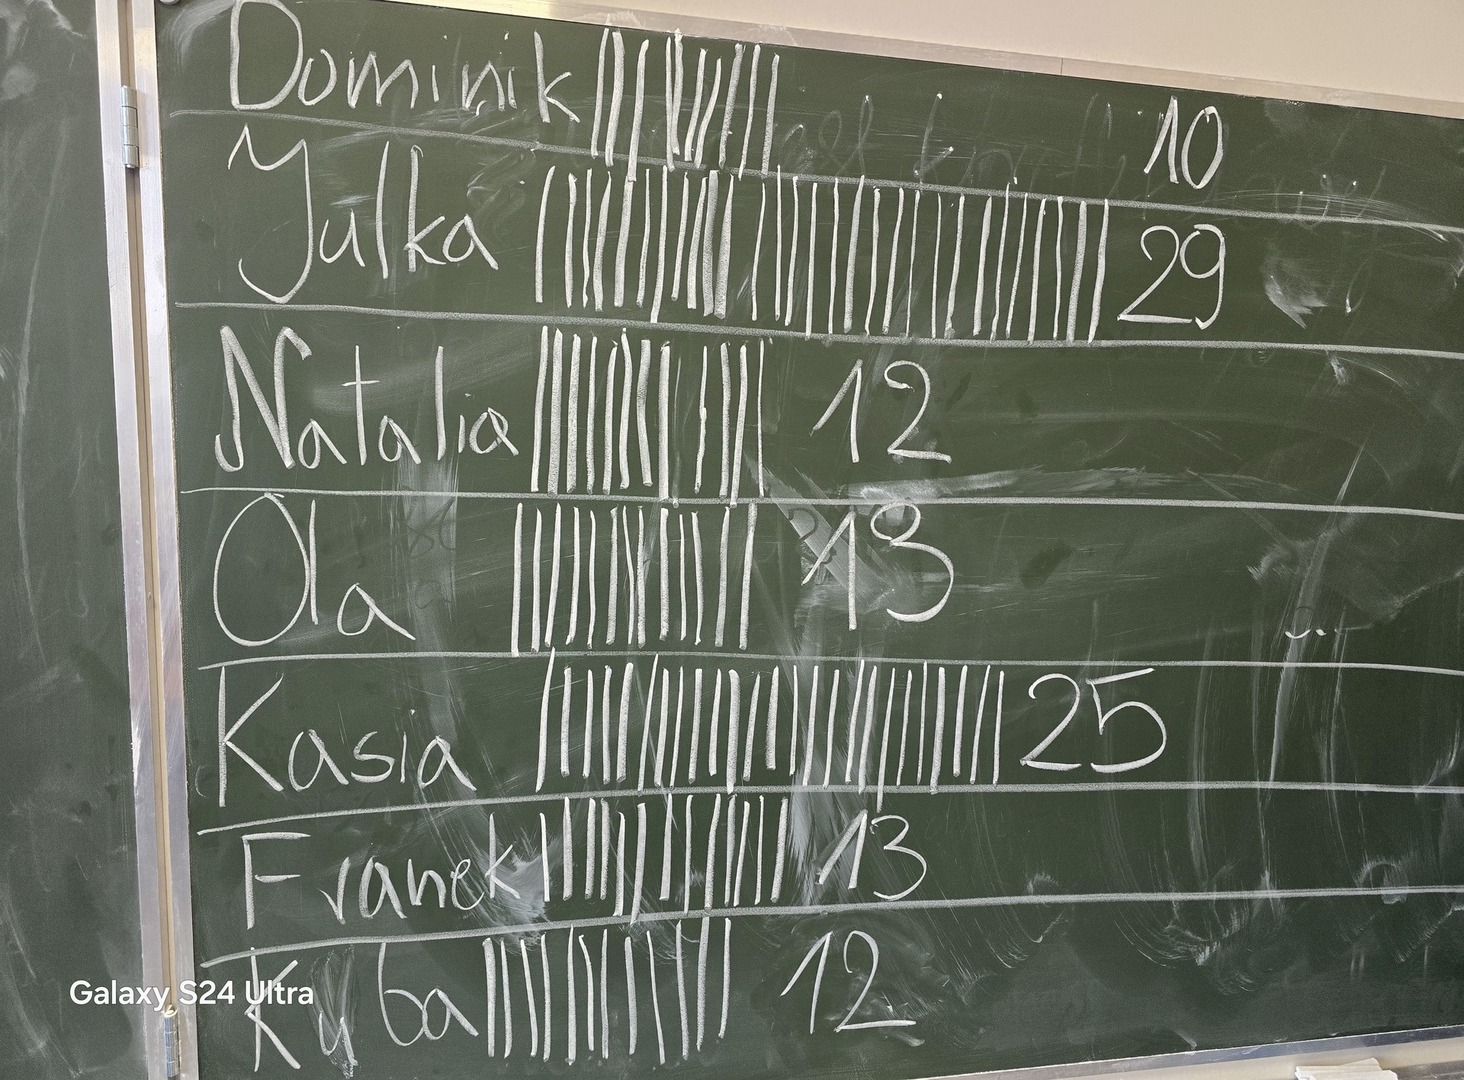 Dominik 10
Julka 29
Natalia 12
Ola 13
Kasia 25
Franek 13
Kuba 12
Galaxy S24 Ultra